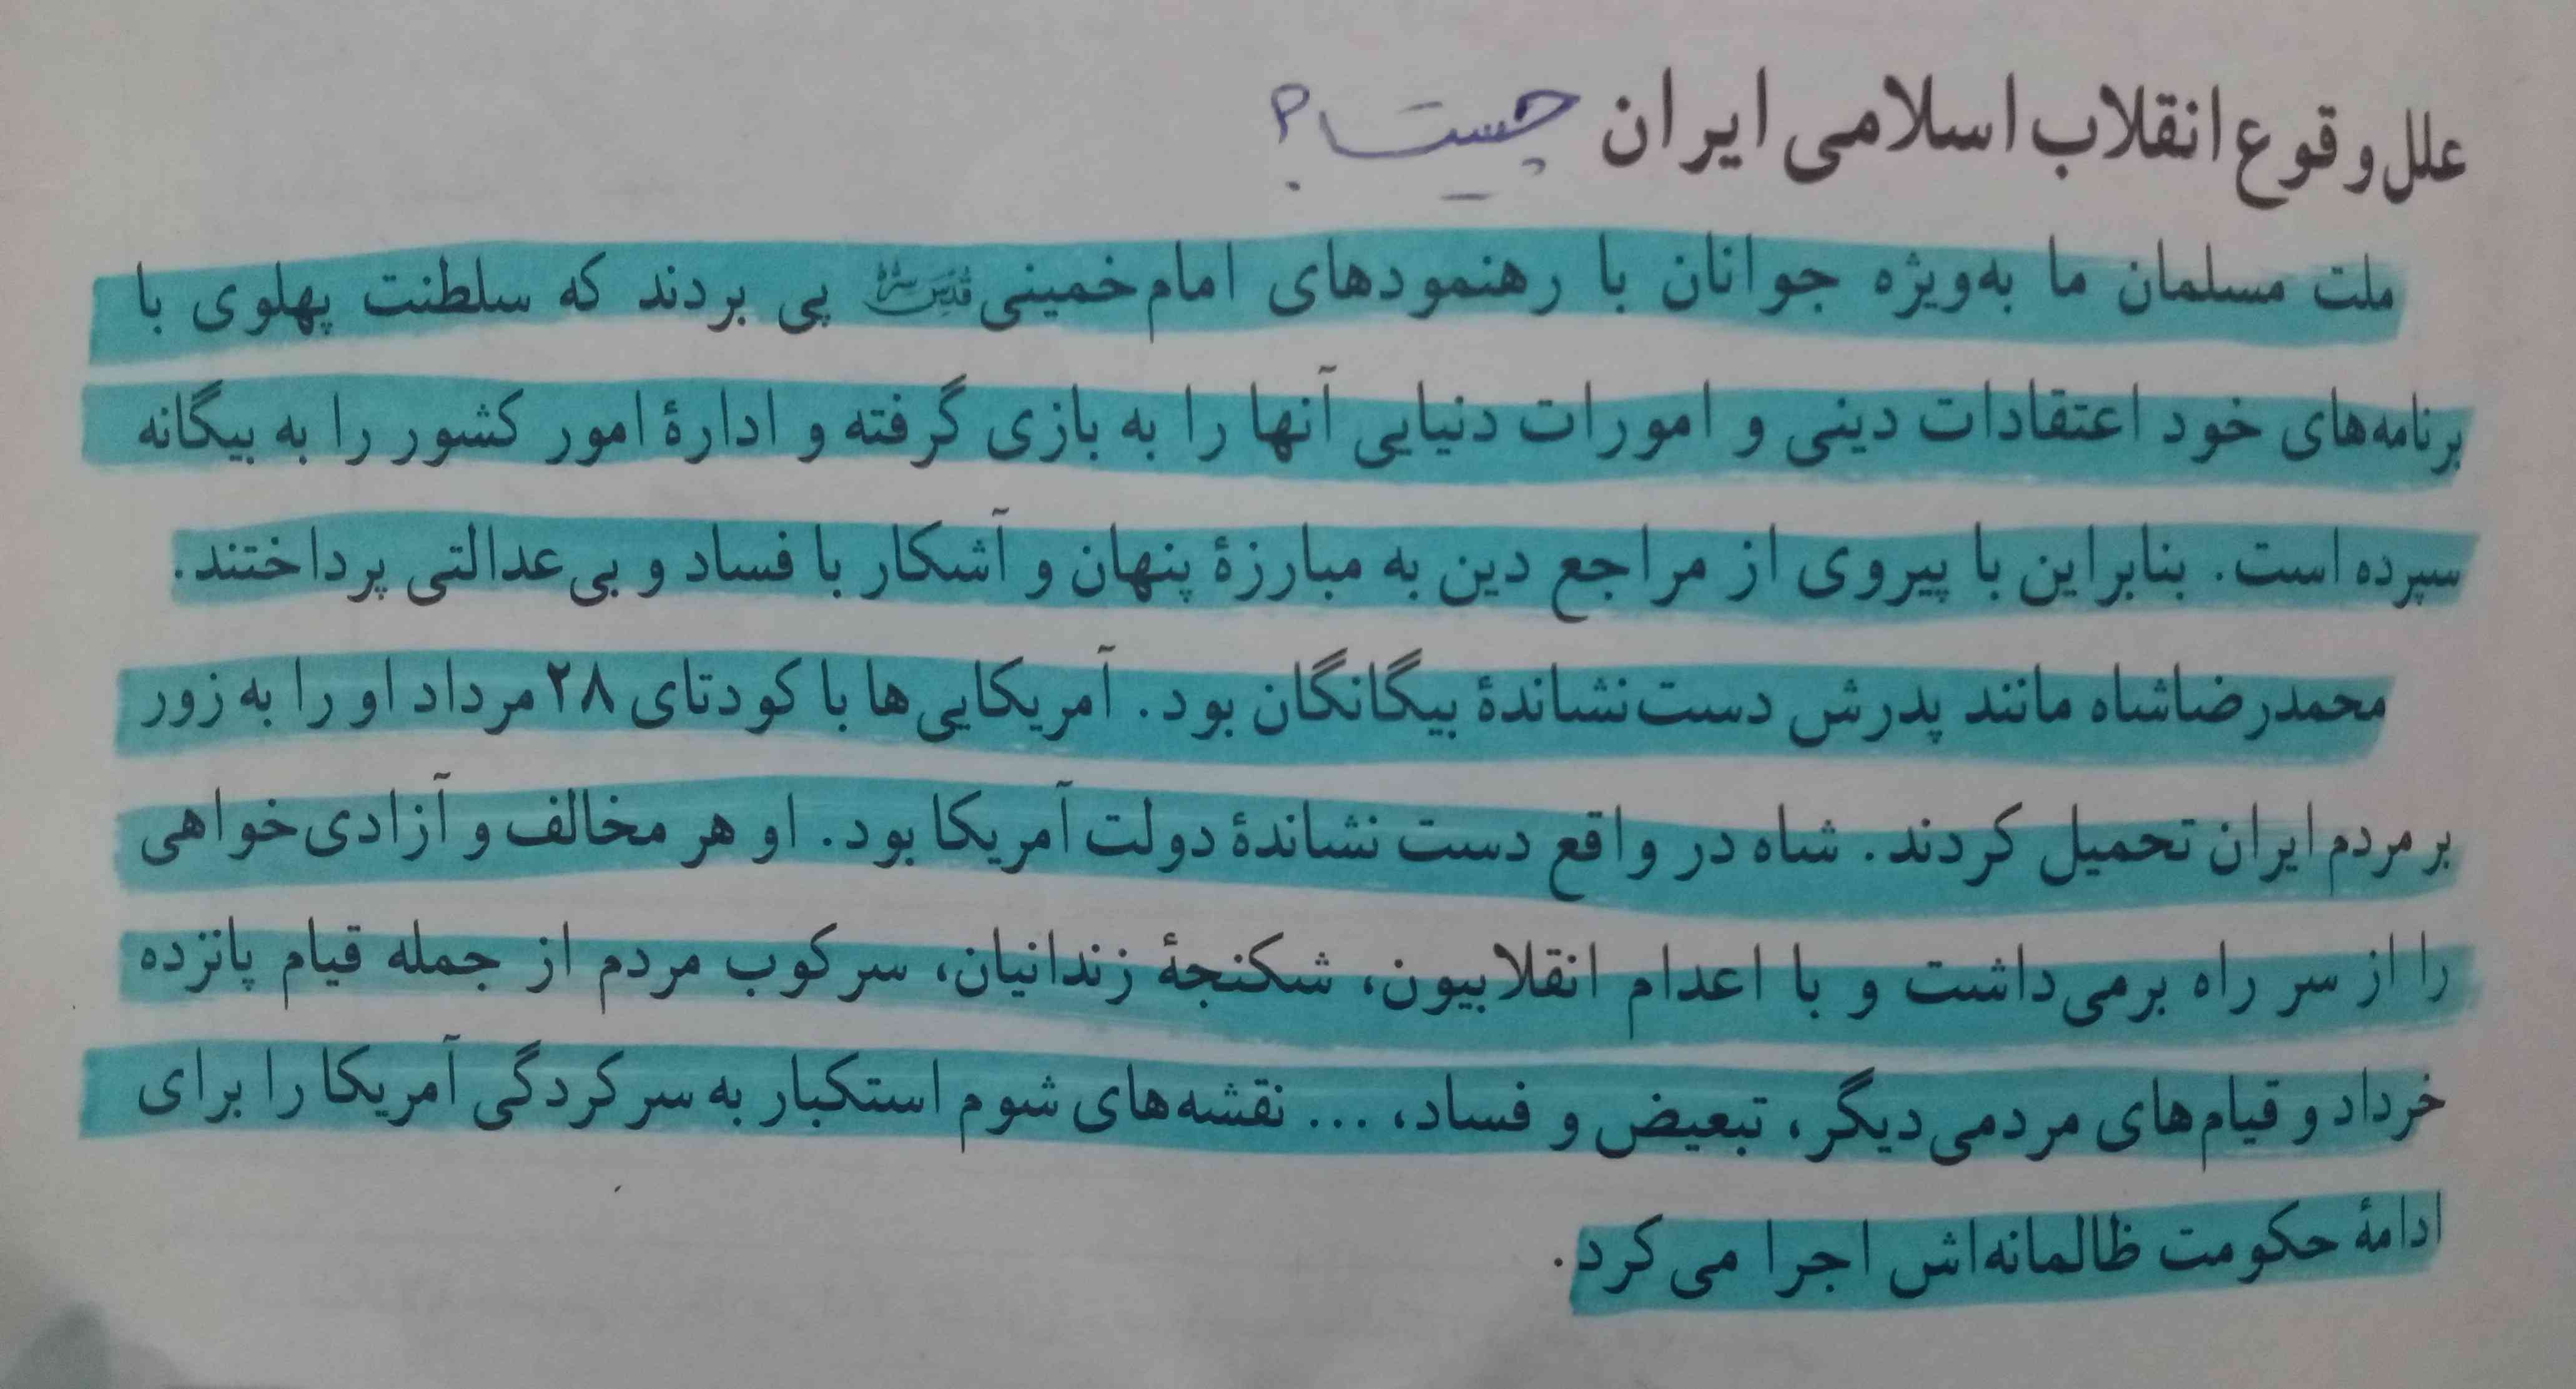 علل وقوع انقلاب اسلامی ایران چیست؟
ملت مسلمان ما به‌ویژه جوانان با رهنمودهای امام‌خمینی قدس سره پی بردند که سلطنت پهلوی با
برنامه‌های خود اعتقادات دینی و امورات دنیایی آنها را به بازی گرفته و ادارهٔ امور کشور را به بیگانه
سپرده است. بنابراین با پیروی از مراجع دین به مبارزهٔ پنهان و آشکار با فساد و بی‌عدالتی پرداختند.
محمدرضاشاه مانند پدرش دست‌نشاندهٔ بیگانگان بود. آمریکایی‌ها با کودتای ۲۸ مرداد او را به زور
بر مردم ایران تحمیل کردند. شاه در واقع دست نشاندهٔ دولت آمریکا بود. او هر مخالف و آزادی‌خواهی
را از سر راه برمی‌داشت و با اعدام انقلابیون، شکنجهٔ زندانیان، سرکوب مردم از جمله قیام پانزده
خرداد و قیام‌های مردمی دیگر، تبعیض و فساد، ... نقشه‌های شوم استکبار به سرکردگی آمریکا را برای
ادامهٔ حکومت ظالمانه‌اش اجرا می‌کرد.